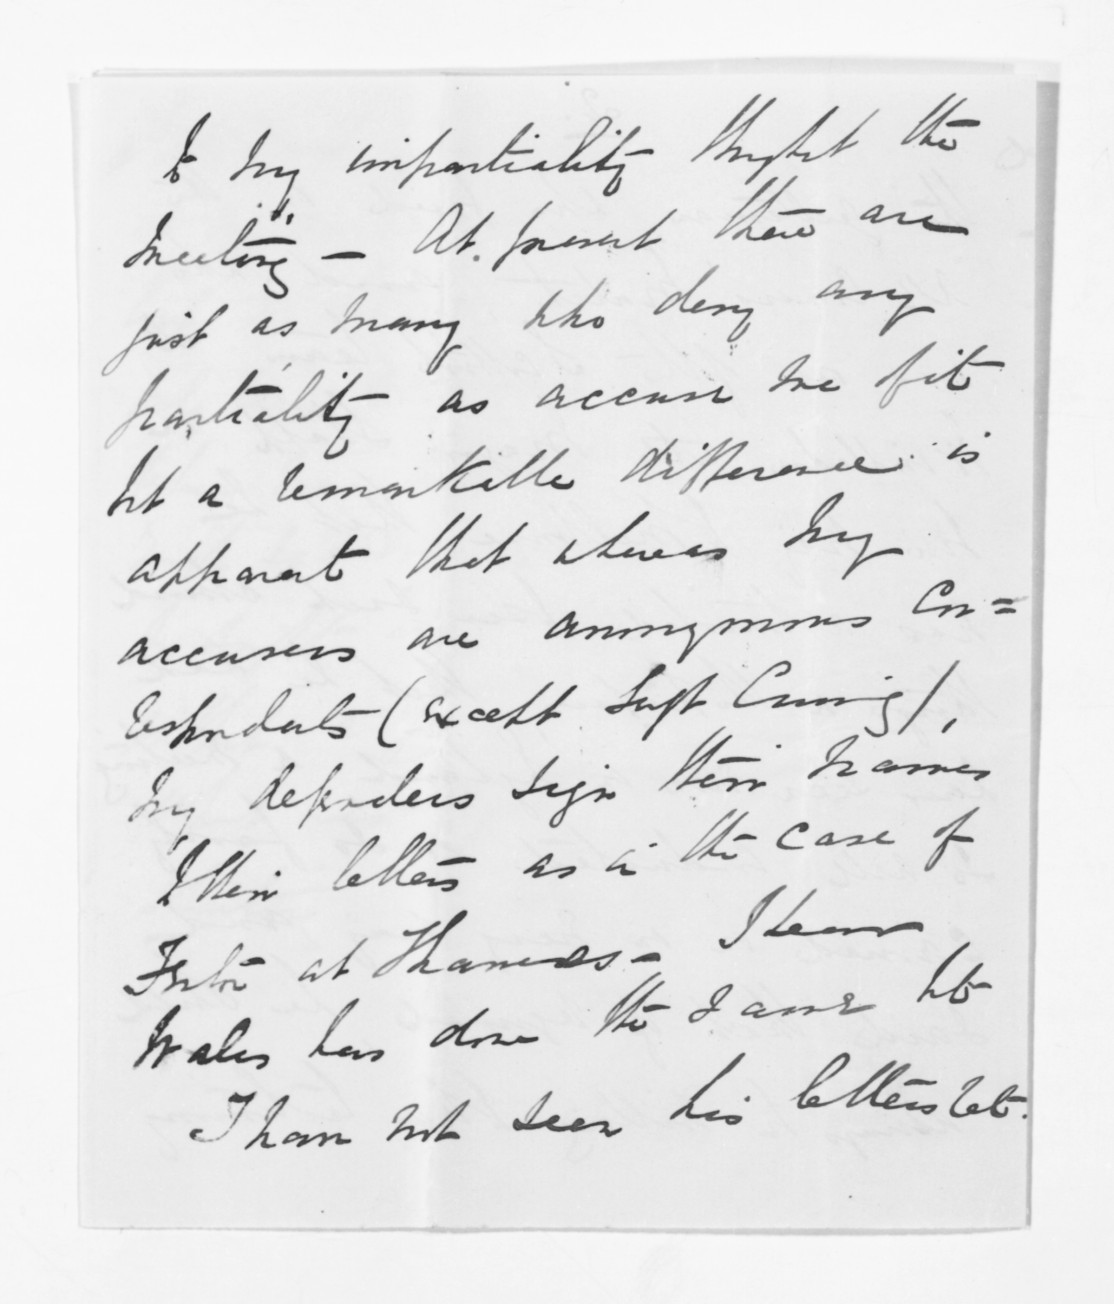 to my impartiality thro'out the
meeting — At present there are
just as many who deny any
partiality as accuse me of it
but a remarkable difference is
apparent that whereas my
accusers are anonymous Cor=
respondents (except Supt
my defenders sign their names
to their letters as in the case of
at Thames — I hear
Wales has done the same but
I have not seen his letters yet.